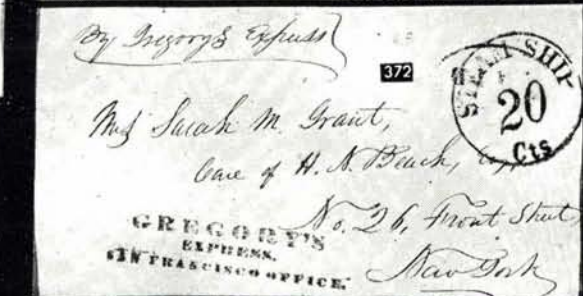 By Gregory's Express
372
STEAM SHIP
20
Cts
Mrs Sarah M. Grant,
Care of H. N. Beach, Esq,
No. 26, Front Street
New York
GREGORY'S
EXPRESS.
SAN FRANCISCO OFFICE.